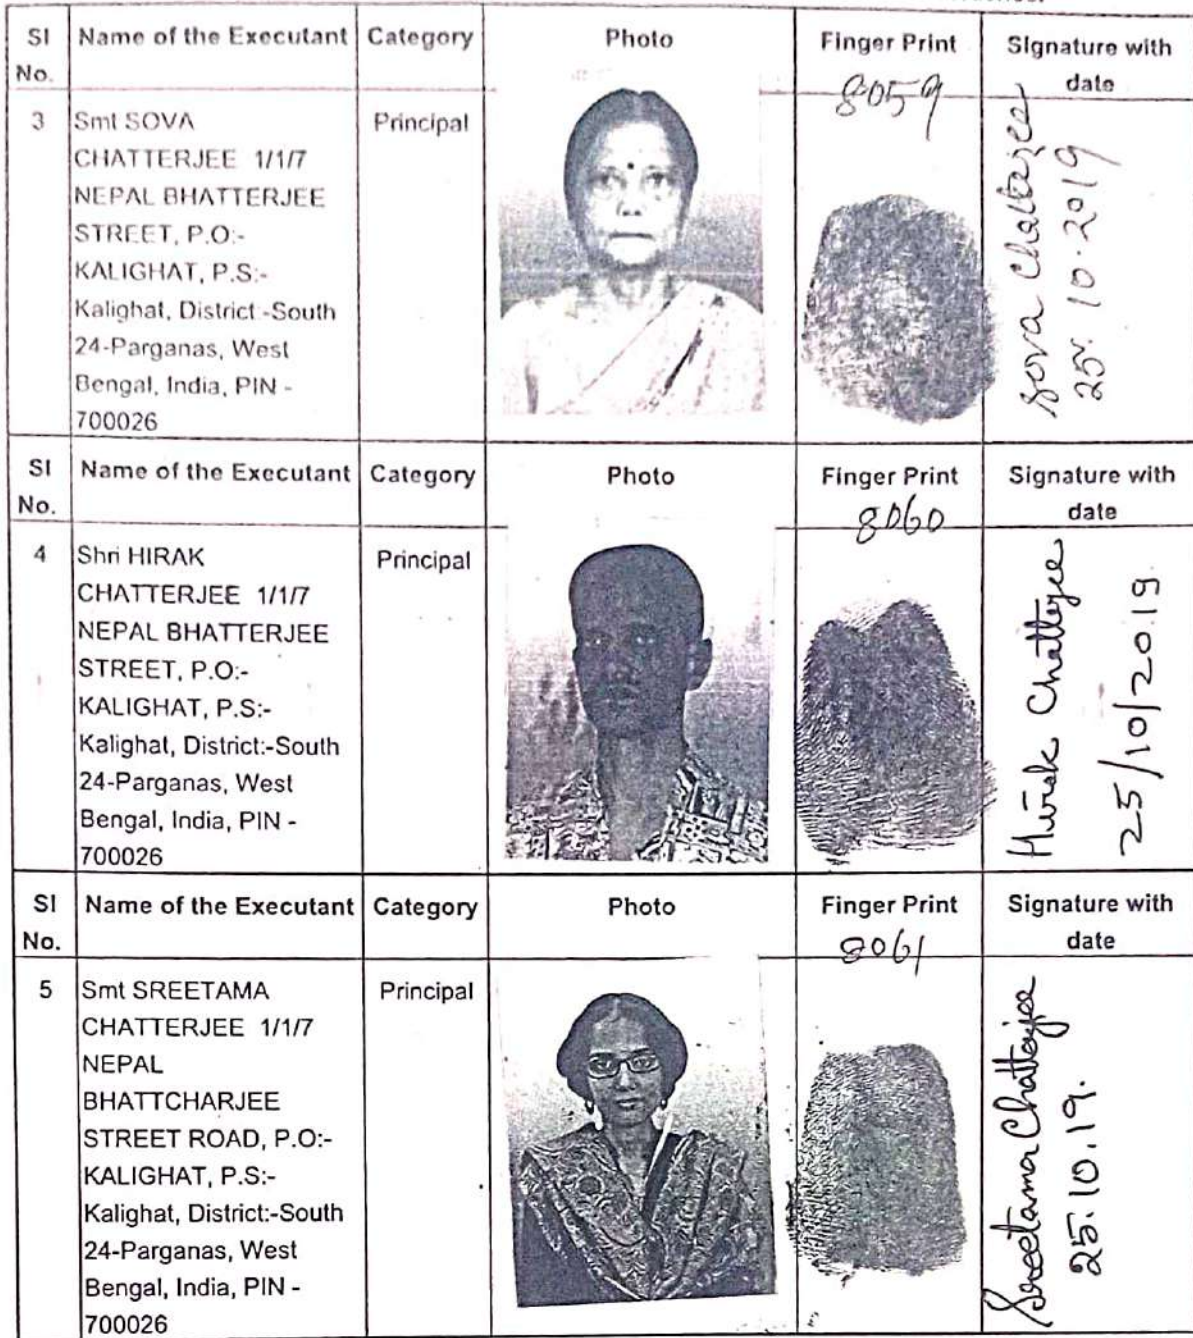 SI No. Name of the Executant Category Photo Finger Print Signature with date
8059
3 Smt SOVA Principal
CHATTERJEE 1/1/7
NEPAL BHATTERJEE
STREET, P.O:-
KALIGHAT, P.S:-
Kalighat, District:-South
24-Parganas, West
Bengal, India, PIN -
700026
Sova Chatterjee
25. 10. 2019
SI No. Name of the Executant Category Photo Finger Print Signature with date
8060
4 Shri HIRAK Principal
CHATTERJEE 1/1/7
NEPAL BHATTERJEE
STREET, P.O:-
KALIGHAT, P.S:-
Kalighat, District:-South
24-Parganas, West
Bengal, India, PIN -
700026
Hirak Chatterjee
25/10/2019
SI No. Name of the Executant Category Photo Finger Print Signature with date
8061
5 Smt SREETAMA Principal
CHATTERJEE 1/1/7
NEPAL
BHATTCHARJEE
STREET ROAD, P.O:-
KALIGHAT, P.S:-
Kalighat, District:-South
24-Parganas, West
Bengal, India, PIN -
700026
Sreetama Chatterjee
25.10.19.